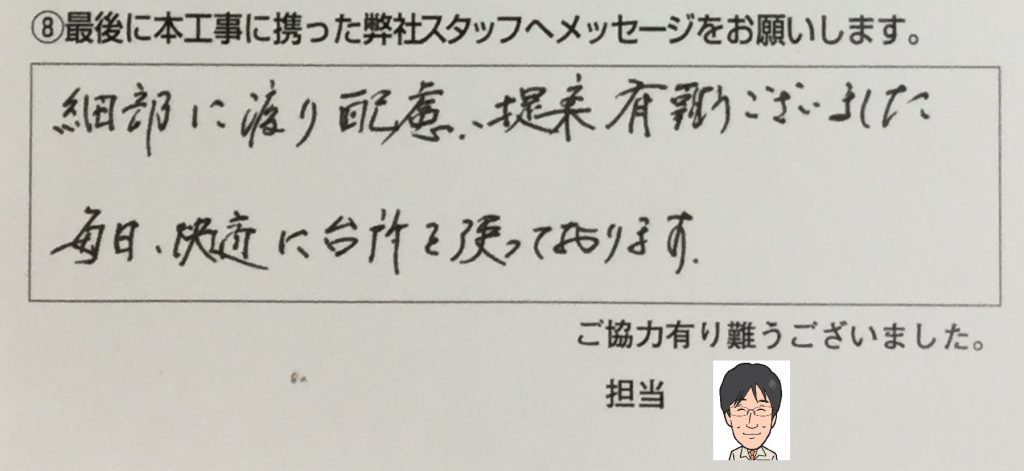 ⑧最後に本工事に携った弊社スタッフへメッセージをお願いします。
細部に渡り配慮、提案有難うございました
毎日、快適に台所を使っております.
ご協力有り難うございました。
担当